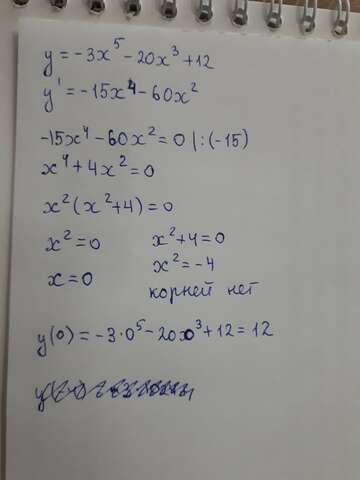 y = -3x⁵ - 20x³ + 12
y' = -15x⁴ - 60x²
-15x⁴ - 60x² = 0 |:(-15)
x⁴ + 4x² = 0
x²(x² + 4) = 0
x² = 0 x² + 4 = 0
x = 0 x² = -4
корней нет
y(0) = -3·0⁵ - 20·0³ + 12 = 12